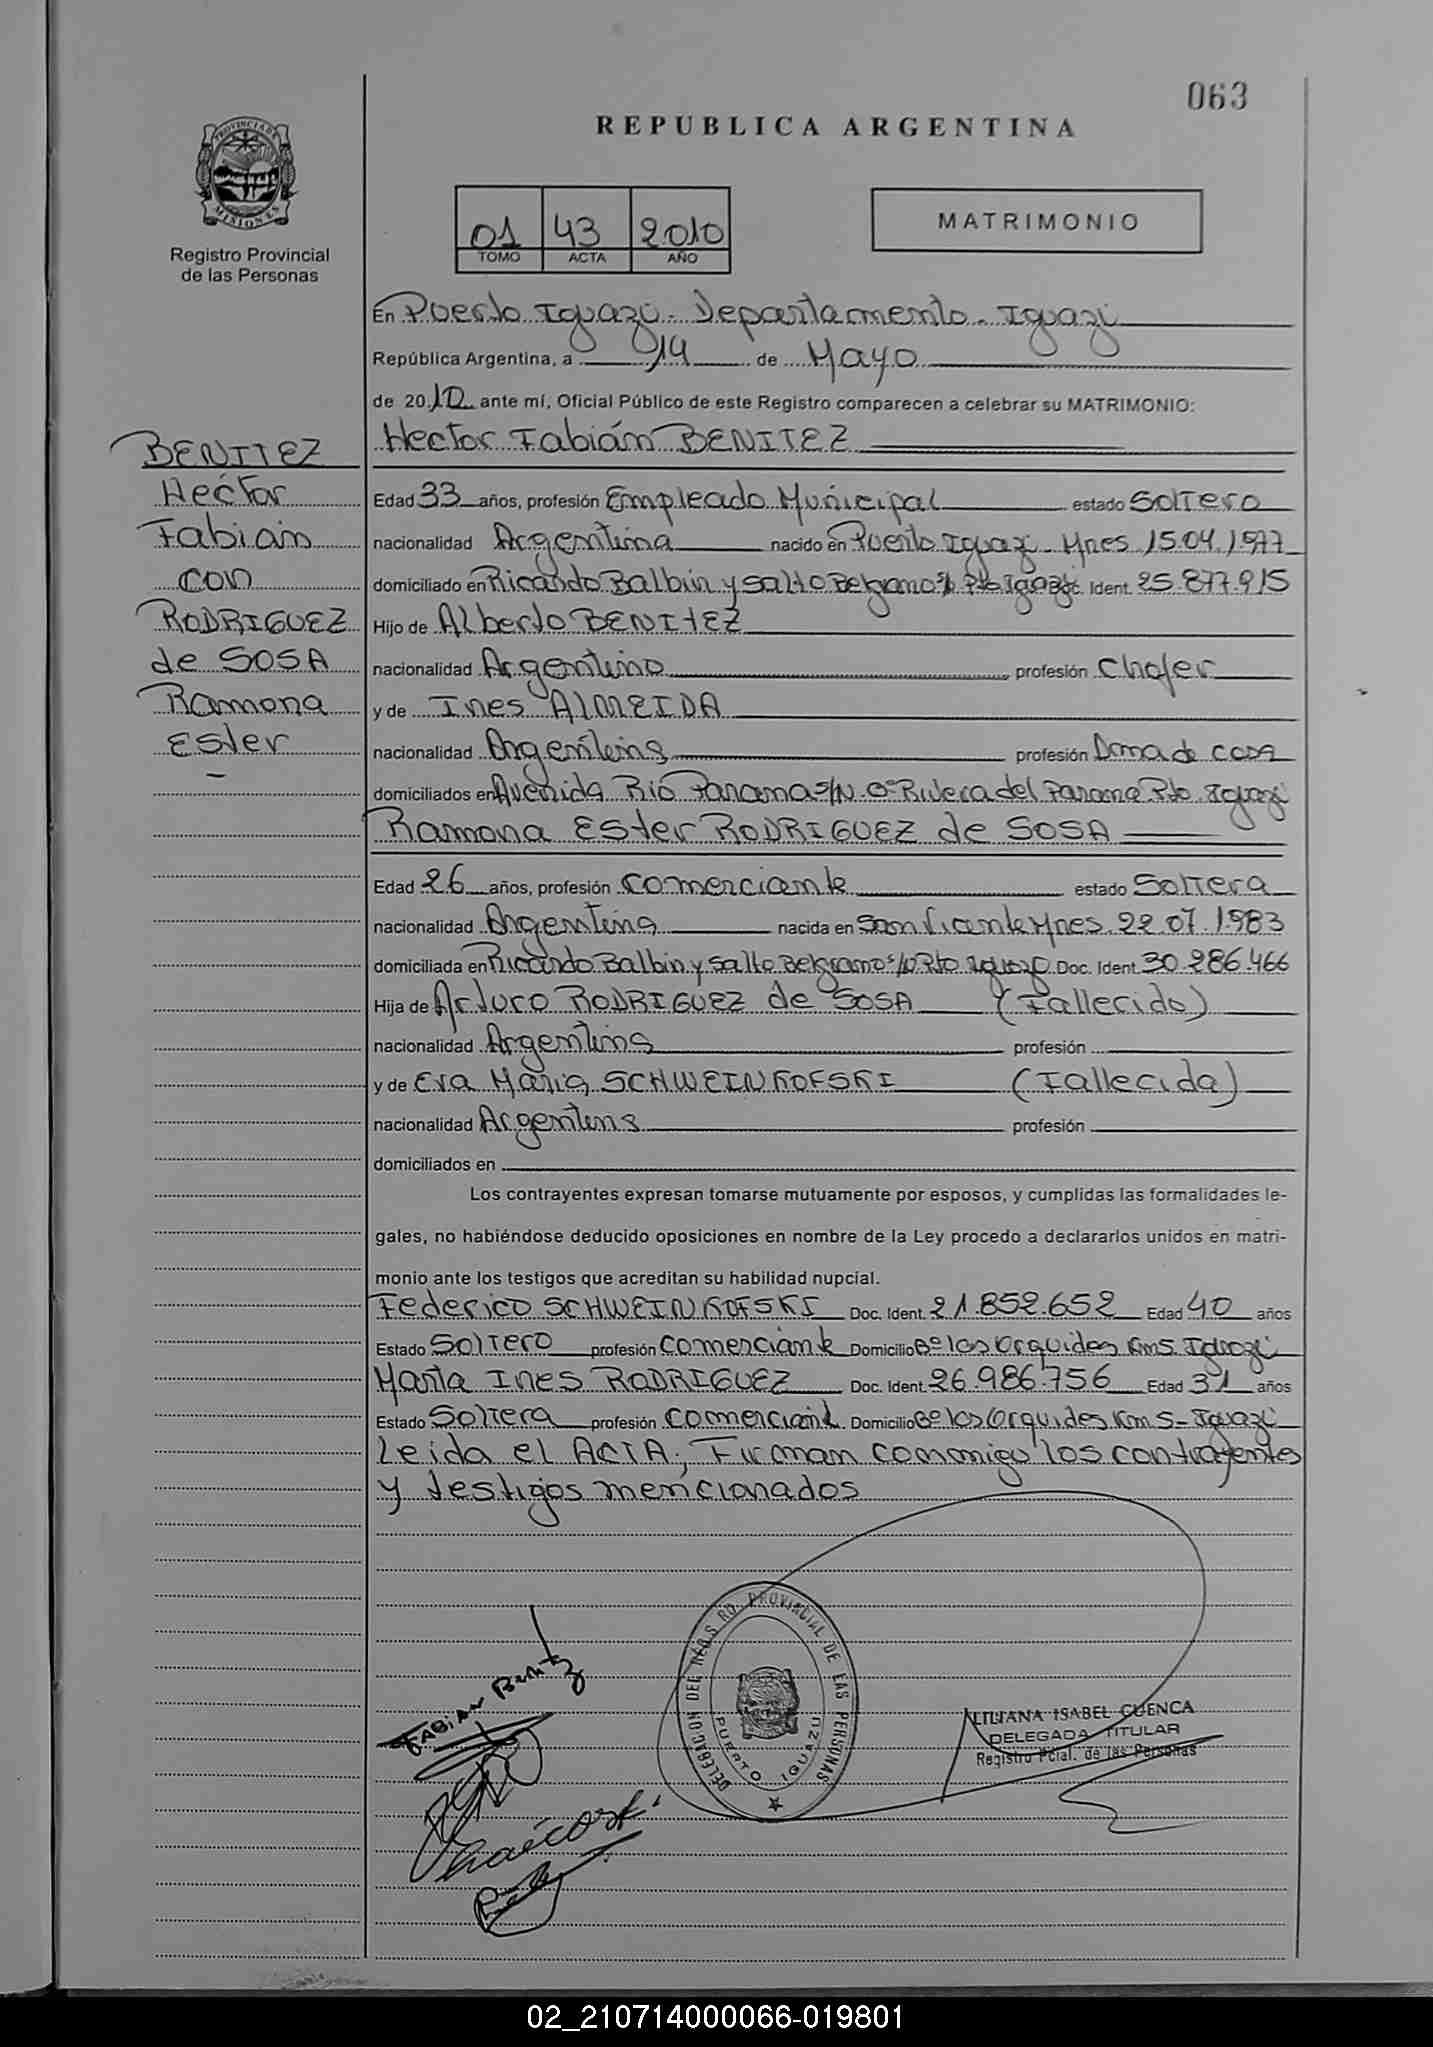 063
REPUBLICA ARGENTINA
PROVINCIA DE
MISIONES
Registro Provincial
de las Personas
01 43 2010
TOMO ACTA AÑO
MATRIMONIO
En Puerto Iguazú - Departamento - Iguazú
República Argentina, a 14 de Mayo
de 2010 ante mí, Oficial Público de este Registro comparecen a celebrar su MATRIMONIO:
Hector Fabián BENITEZ
BENITEZ
Hector
Fabian
con
RODRIGUEZ
de SOSA
Ramona
Ester
Edad 33 años, profesión Empleado Municipal estado Soltero
nacionalidad Argentina nacido en Puerto Iguazú - Mnes 15.04.1977
domiciliado en Ricardo Balbin y Salto Belgrano s/n Pto Iguazú Doc. Ident. 25.877.915
Hijo de Alberto BENITEZ
nacionalidad Argentino profesión Chofer
y de Ines ALMEIDA
nacionalidad Argentina profesión Ama de casa
domiciliados en Avenida Rio Parana s/N Bº Rivera del Parana Pto. Iguazú
Ramona Ester RODRIGUEZ de SOSA
Edad 26 años, profesión comerciante estado Soltera
nacionalidad Argentina nacida en San Vicente Mnes. 22.07.1983
domiciliada en Ricardo Balbin y Salto Belgrano s/n Pto Iguazú Doc. Ident. 30.286.466
Hija de Arturo RODRIGUEZ de SOSA (Fallecido)
nacionalidad Argentina profesión
y de Eva Maria SCHWEINKOFSKI (Fallecida)
nacionalidad Argentina profesión
domiciliados en
Los contrayentes expresan tomarse mutuamente por esposos, y cumplidas las formalidades le-
gales, no habiéndose deducido oposiciones en nombre de la Ley procedo a declararlos unidos en matri-
monio ante los testigos que acreditan su habilidad nupcial.
Federico SCHWEINKOFSKI Doc. Ident. 21.852.652 Edad 40 años
Estado Soltero profesión comerciante Domicilio Bº las Orquideas Km5 Iguazú
Marta Ines RODRIGUEZ Doc. Ident. 26.986.756 Edad 31 años
Estado Soltera profesión comerciante Domicilio Bº las Orquideas Km 5 - Iguazú
Leida el ACTA, Firman conmigo los contrayentes
y testigos mencionados
FABIAN Benitez
DELEGACION DEL REGISTRO PROVINCIAL DE LAS PERSONAS
PUERTO IGUAZU
LILIANA ISABEL CUENCA
DELEGADA TITULAR
Registro Pcial. de las Personas
02_210714000066-019801